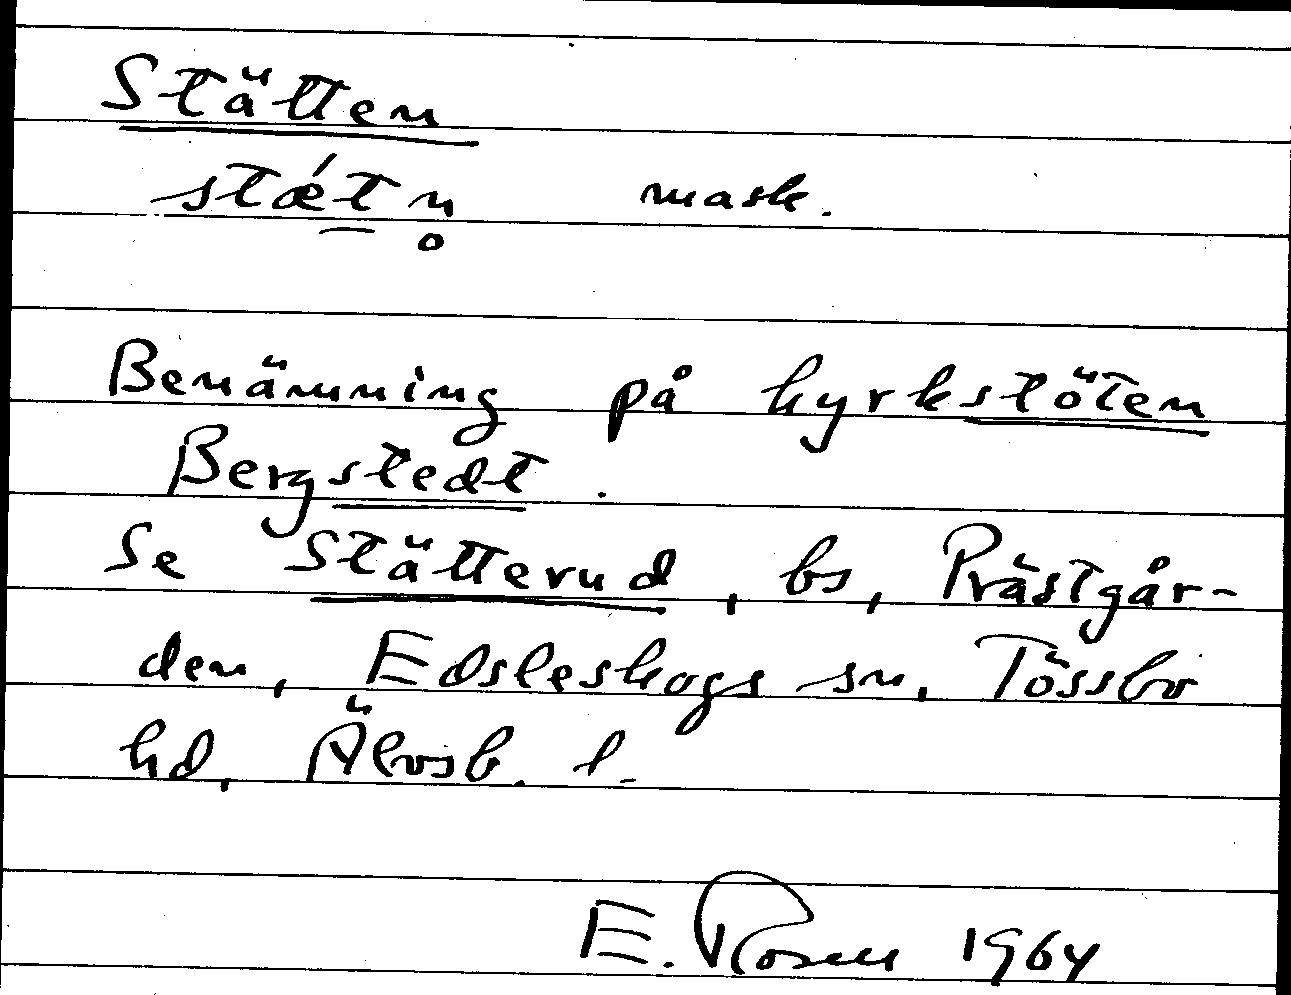 Stätten
stǽt̲n̥ mask.
Benämning på kyrkstöten
Bergstedt.
Se Stätterud, bs, Prästgår-
den, Edsleskogs sn, Tössbo
hd, Älvsb. l.
E. Rosell 1964